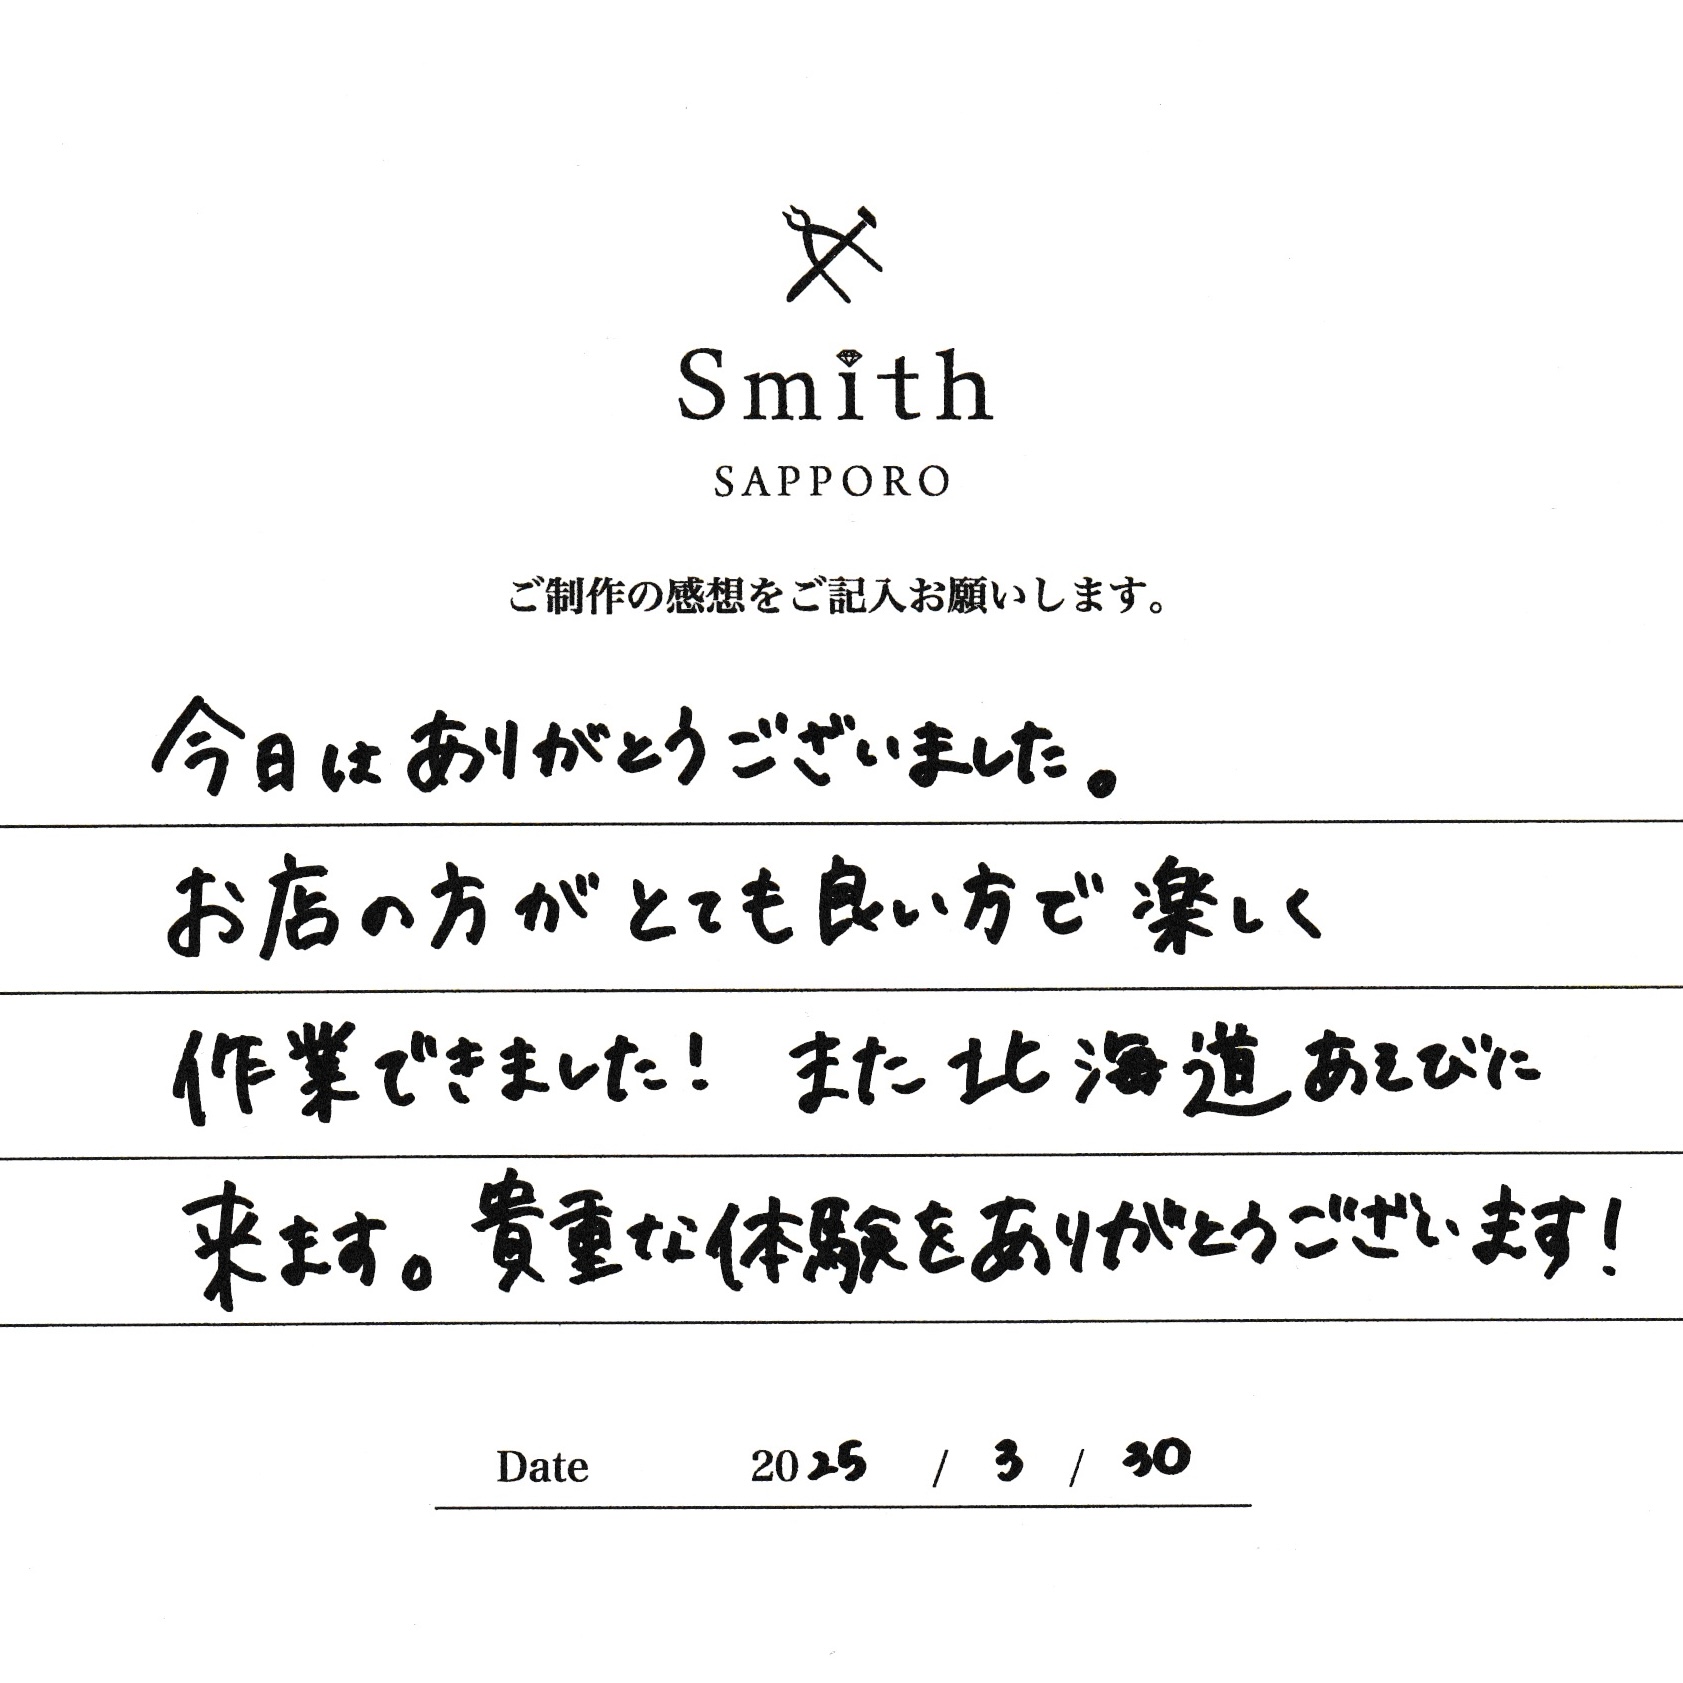 Smith
SAPPORO
ご制作の感想をご記入お願いします。
今日はありがとうございました。
お店の方がとても良い方で楽しく
作業できました! また北海道あそびに
来ます。貴重な体験をありがとうございます!
Date 2025 / 3 / 30